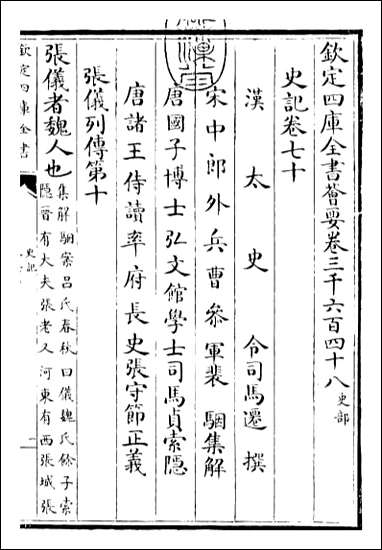 欽定四庫全書薈要卷三千六百四十八 史部
史記卷七十
漢太史令司馬遷撰
宋中郎外兵曹參軍裴駰集解
唐國子博士弘文館學士司馬貞索隱
唐諸王侍讀率府長史張守節正義
張儀列傳第十
張儀者魏人也 集解駰案呂氏春秋曰儀魏氏餘子索
隱晉有大夫張老又河東有西張城張
欽定四庫全書
史記
一